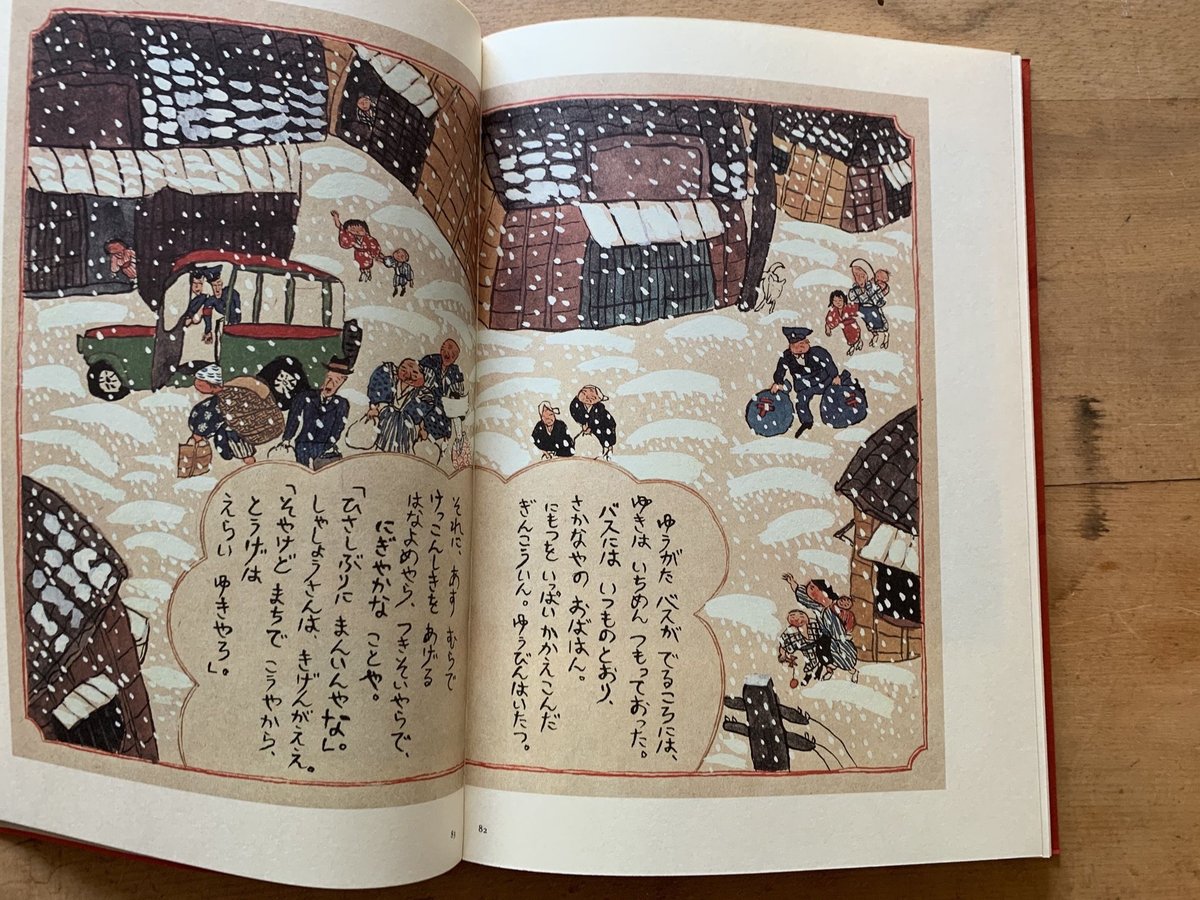 ゆうがた バスが でるころには、
ゆきは いちめん つもっておった。
バスには いつものとおり、
さかなやの おばはん。
にもつを いっぱい かかえこんだ
ぎんこういん。ゆうびんはいたつ。
それに、あす むらで
けっこんしきを あげる
はなよめやら、つきそいやらで、
にぎやかな ことや。
「ひさしぶりに まんいんやな」
しゃしょうさんは、きげんがええ。
「そやけど まちで こうやから、
とうげは
えらい ゆきやろ」
82
83